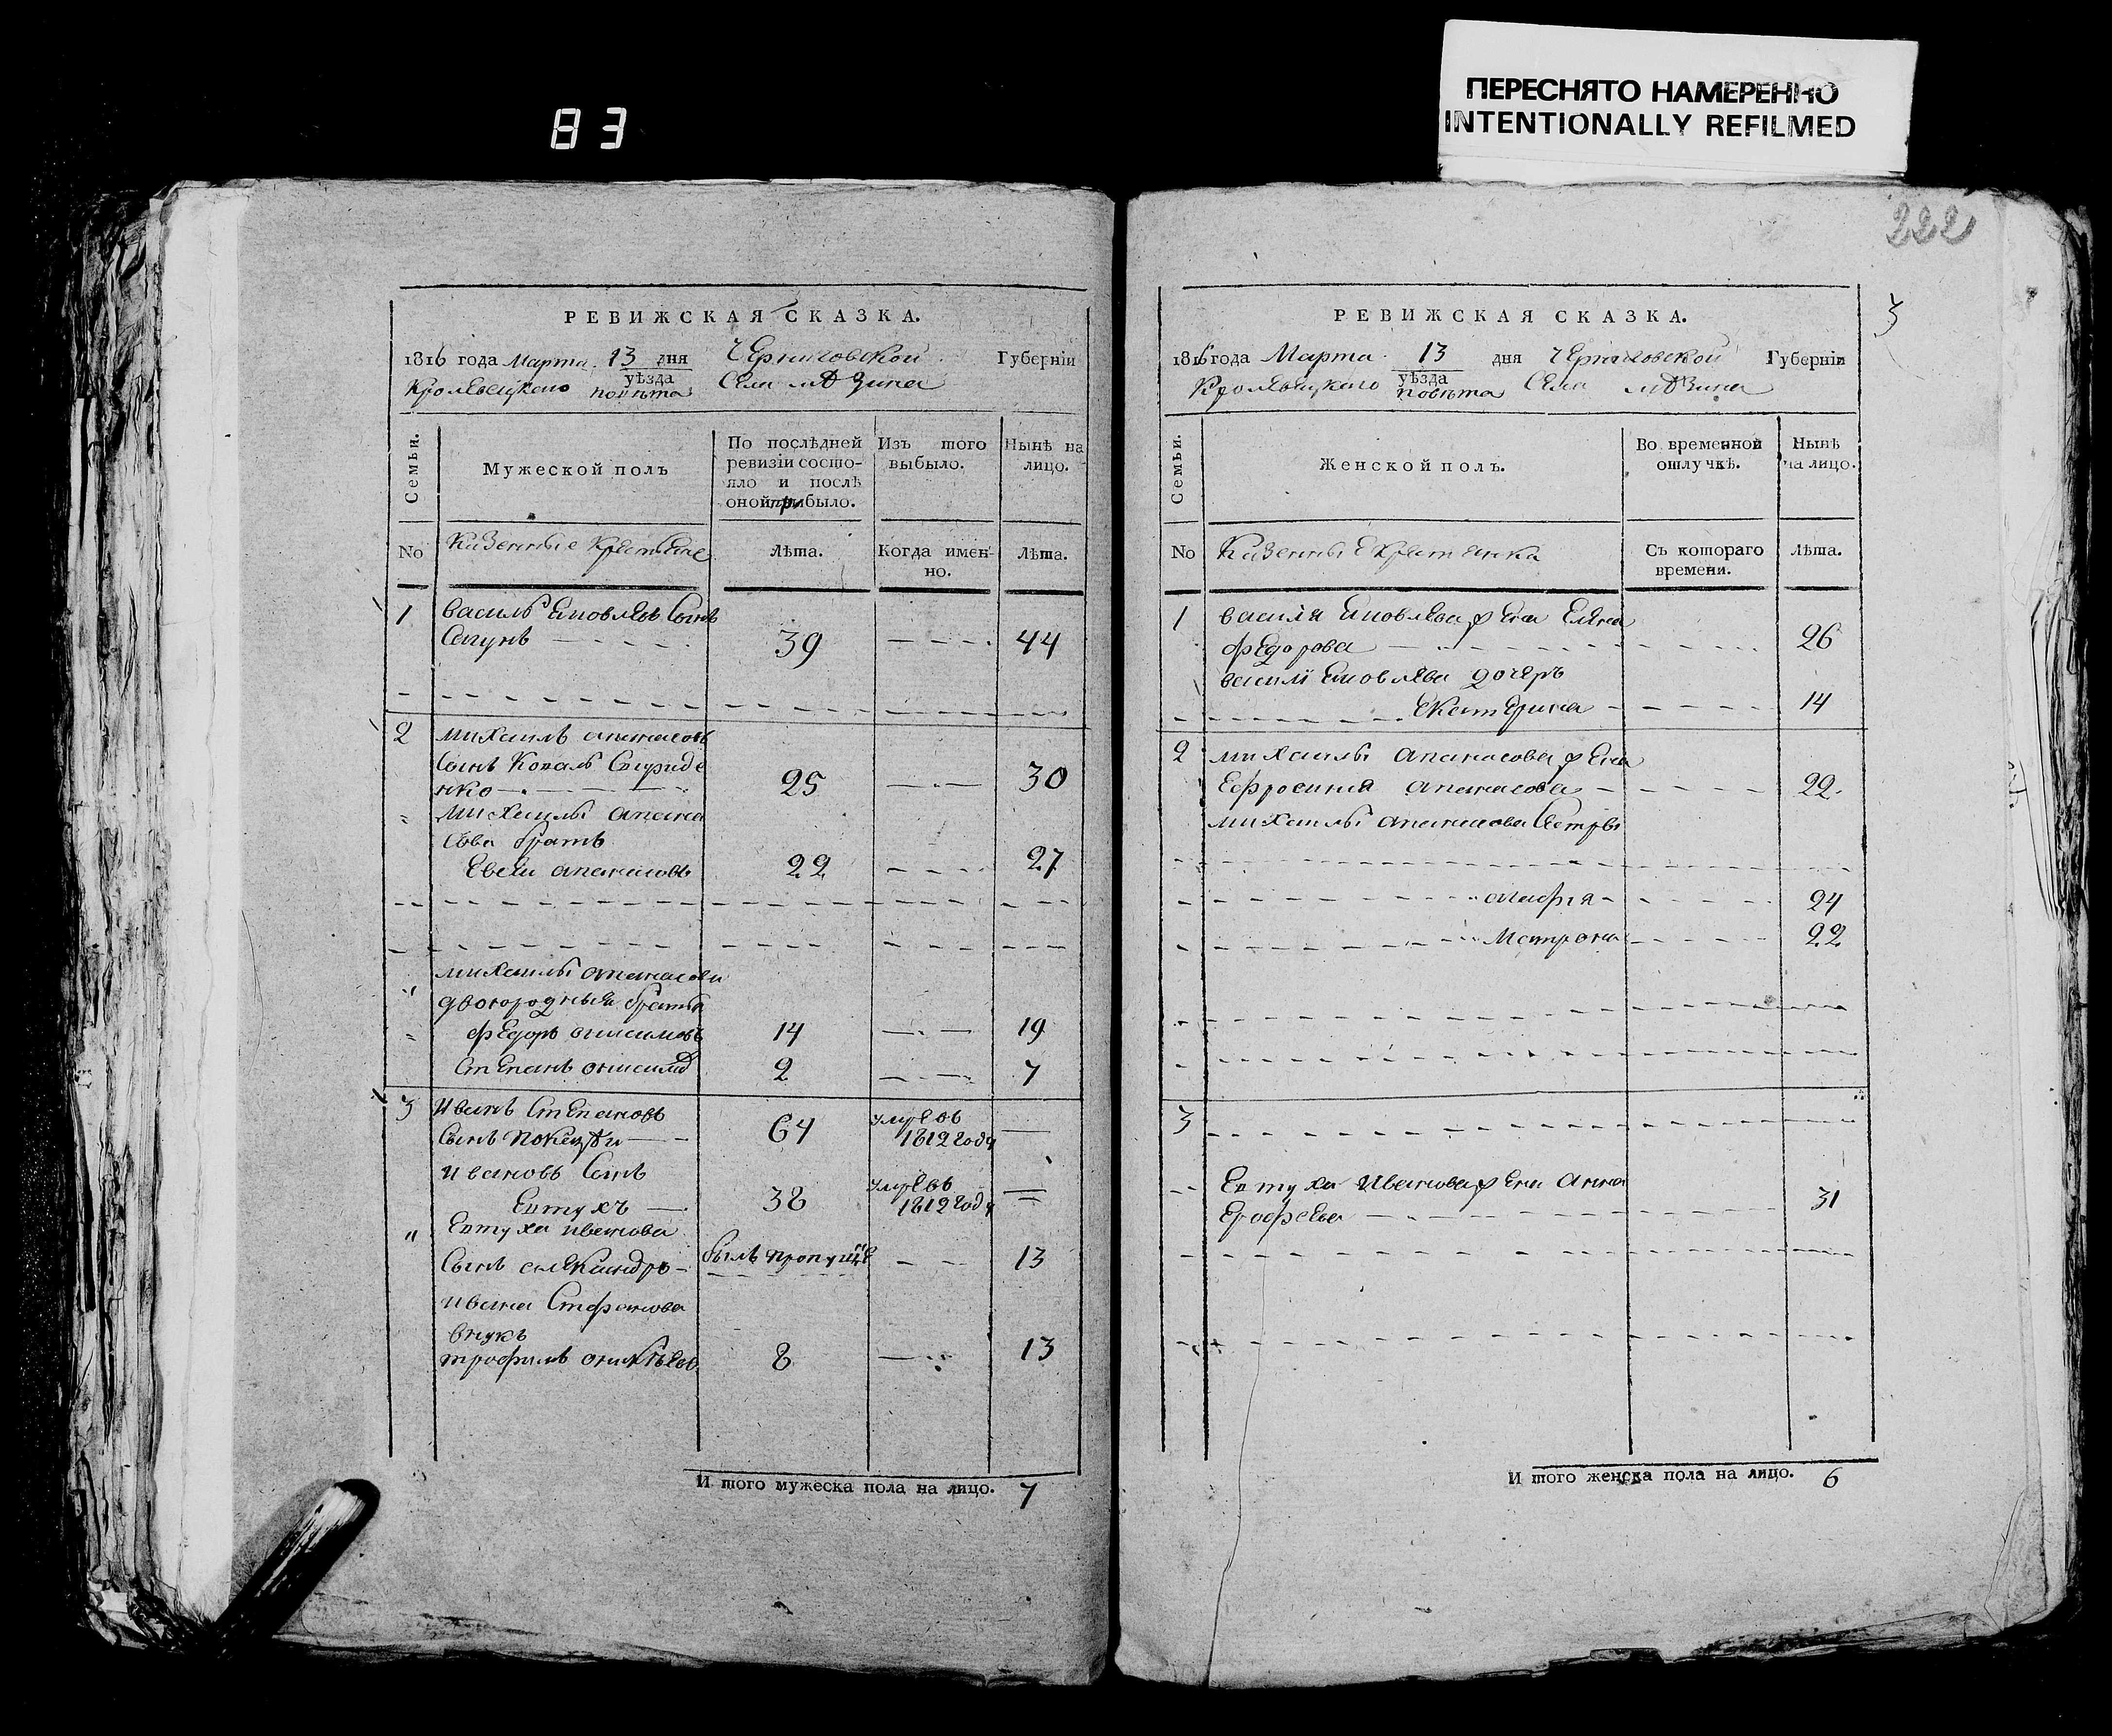 83
ПЕРЕСНЯТО НАМЕРЕННО
INTENTIONALLY REFILMED
222
3
РЕВИЖСКАЯ СКАЗКА.
1816 года Марта 13 дня Черниговской Губерніи
Кролевецкого уѣзда повѣта Села мѣзина
Семьи.
Мужеской полъ
По послѣдней ревизіи состо-
яло и послѣ
оной прибыло.
Изъ того
выбыло.
Нынѣ на
лицо.
No
Казенные крестьяне
Лѣта.
Когда имен-
но.
Лѣта.
1 василь Яковлевъ Сынъ
39 44
2 михаилъ апанасовъ
Сынъ Коваль Спириде
нко 25 30
михаилы апана
сова братъ
Евсей апанасовъ 22 27
михаилы апанасова
двоюродныя братья
федоръ онисимовъ 14 19
Степанъ онисимов 2 7
3 Иванъ Степановъ
Сынъ 64 умре въ 1812 году
Ивановъ Сынъ
Евтухъ 38 умре въ 1812 году
Евтуха иванова
Сынъ александръ былъ пропущ 13
ивана Стефанова
внукъ
трофимъ 8 13
И того мужеска пола на лицо. 7
РЕВИЖСКАЯ СКАЗКА.
1816 года Марта 13 дня Черниговской Губерніи
Кролевецкаго уѣзда повѣта Села мѣзина
Семьи.
Женской полъ.
Во временной
отлучкѣ.
Нынѣ
на лицо.
No
Казенные крестянки
Съ котораго
времени.
Лѣта.
1 василя Яковлева жена
федорова 26
василя Яковлева дочерь
Екатерина 14
2 михаилы апанасова жена
Ефросиния апанасова 22
михаилы апанасова Сестры
агафия 24
Матрона 22
3
Евтуха Иванова жена Анна
Ерофеева 31
И того женска пола на лицо. 6